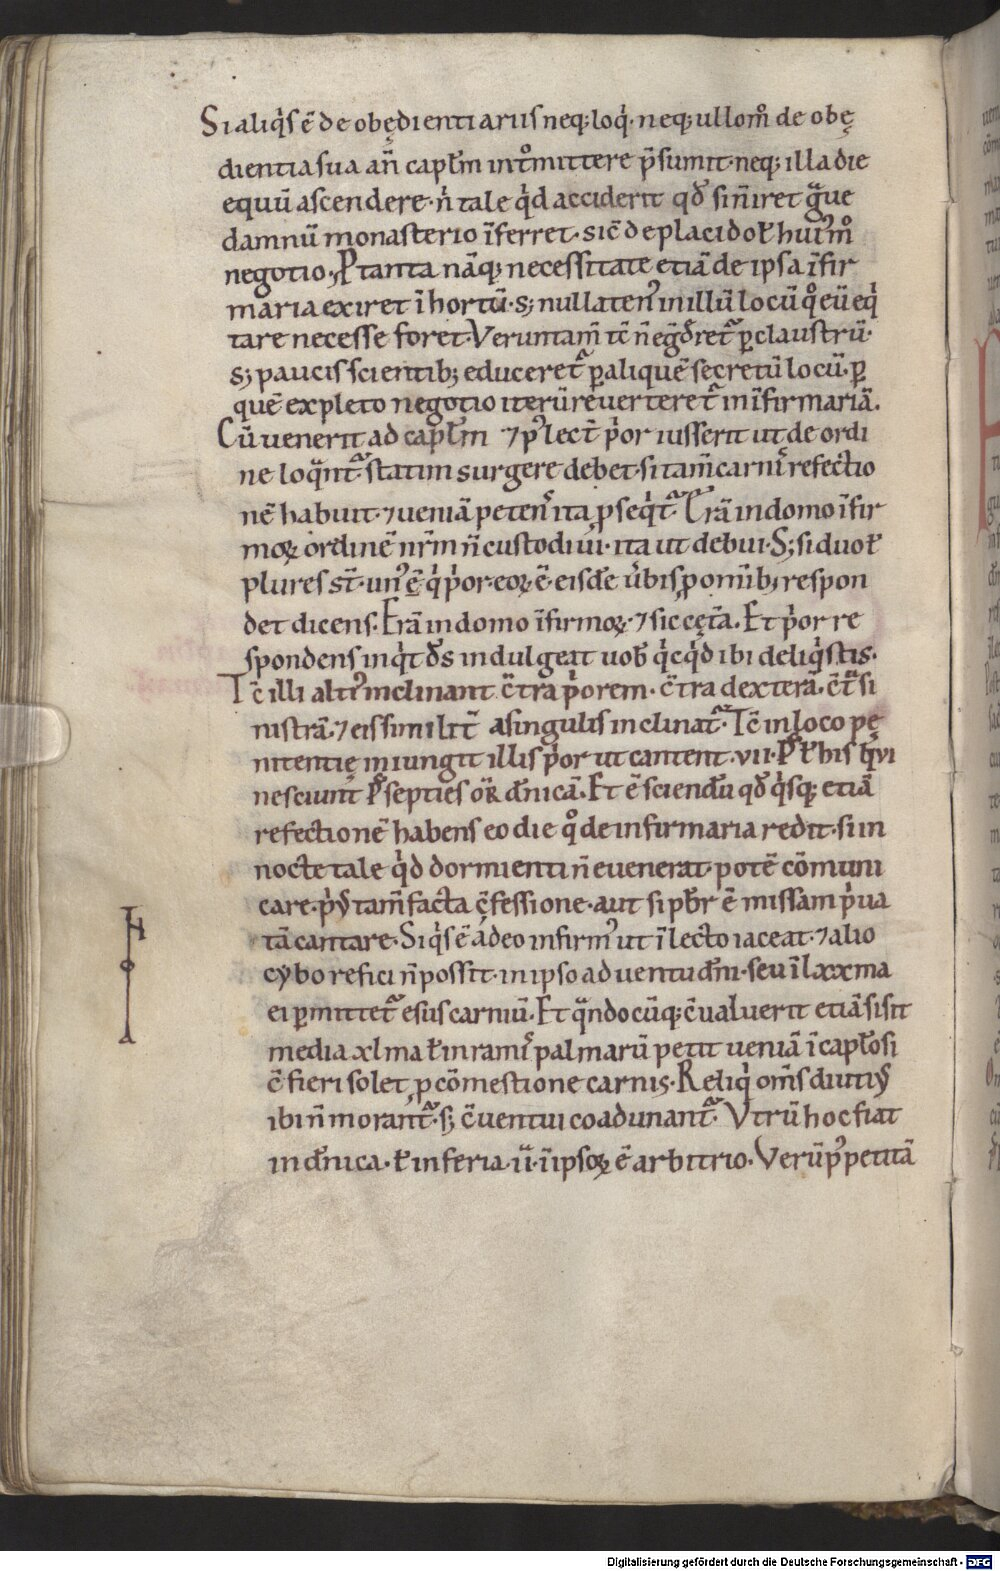 Si aliq̇s ē de obędientiariis neq; loqͥ. neq; ullom̊ de obę
dientia sua an̄ capłm int̊mittere p̄sumit. neq; illa die
equū ascendere. nͥ tale qͥd acciderit qđ si n̄ iret gͣue
damnū monasterio īferret. sic̄ de placido ł huiꝰm̊
negotio. Ꝓ tanta nāq; necessitate etiā de ipsa īfir
maria exiret ī hortū. s; nullatenꝰ in illū locū q̊ eū eqͥ
tare necesse foret. Veruntam̄ tc̄ n̄ egᷓđret᷑ ꝑ claustrū.
s; paucis scientib; educeret᷑ ꝑ aliquē secretū locū. ꝑ
quē expleto negotio iterū reverteret᷑ in īfirmariā.
Cū venerit ad capłm ⁊ pꝰ lect̄ pͥor iusserit ut de ordi
ne loqͣnt᷑. statim surgere debet. si tam̄ carnͥs refectio
nē habuit. ⁊ veniā petenꝰ ita ꝓseqͥt᷑. Erā in domo īfir
moꝝ ordinē nr̄m n̄ custodivi. ita ut debui. S; si duo ł
plures st̄. unꝰ q̇ pͥor. eoꝝ ē. eisđe v̄bis ꝓ omīb; respon
det dicens. Erā in domo īfirmoꝝ. ⁊ sic cęt̄a. Et pͥor re
spondens inqͥt đs indulgeat uob̄ qͥcqͥd ibi deliqͥstis.
Tc̄ illi altiꝰ inclinant c̄tra pͥorem. c̄tra dexterā. c̄tͣ si
nistrā. ⁊ eis similit̄ a singulis inclinat᷑. Tc̄ in loco pę
nitentię iniungit illis pͥor ut cantent. vii. Ps̄ ł his qͥ vii
nesciunt Ps̄ septies or̄ đnicā. Et ē sciendū qđ qͥsq; etiā
refectionē habens eo die q̊ de infirmaria redit. si in
nocte tale qͥd dormienti n̄ evenerat. potē cōmuni
care. pͥꝰ tam̄ facta c̄fessione. aut si pbr̄ ē missam pͥua
tā cantare. Si qͥs ē adeo infirmꝰ ut ī lecto iaceat. ⁊ alio
cybo refici n̄ possit. in ipso adventu đni. seu ī lxxma
ei ꝑmittet᷑ esus carniū. Et qͣndocūq; c̄ualuerit etiā si sit
media xlma ł in ramͥs palmarū petit veniā ī capło si
c̄ fieri solet, ꝓ cōmestione carnis. Reliqͥ om̄s diutiꝰ
ibi n̄ morant᷑. s; c̄ventui coadunant᷑. Utrū hoc fiat
in đnica. ł in feria. ii. ī ipsoꝝ ē arbitrio. Verū pꝰ petitā
Digitalisierung gefördert durch die Deutsche Forschungsgemeinschaft - DFG